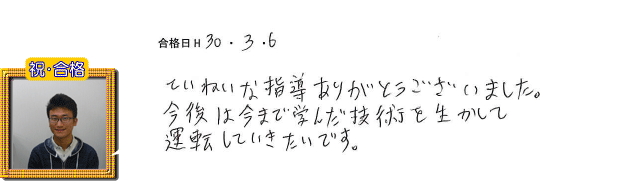 合格日H 30.3.6
祝・合格
ていねいな指導ありがとうございました。
今後は今まで学んだ技術を生かして
運転していきたいです。